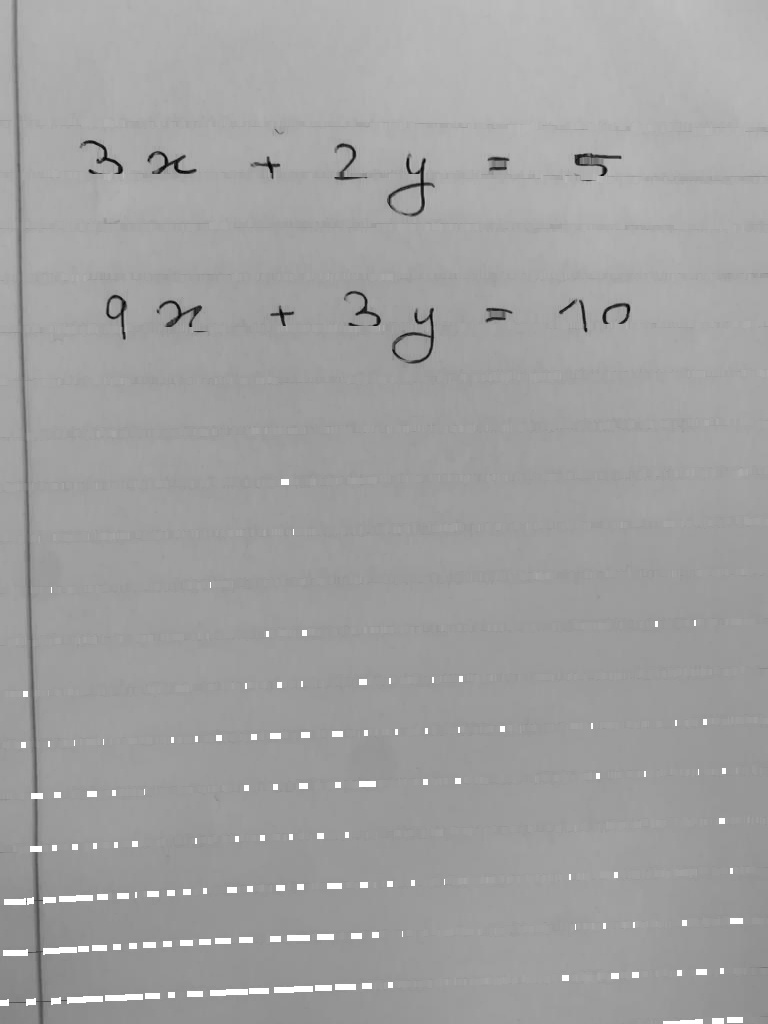 3x + 2y = 5
9x + 3y = 10